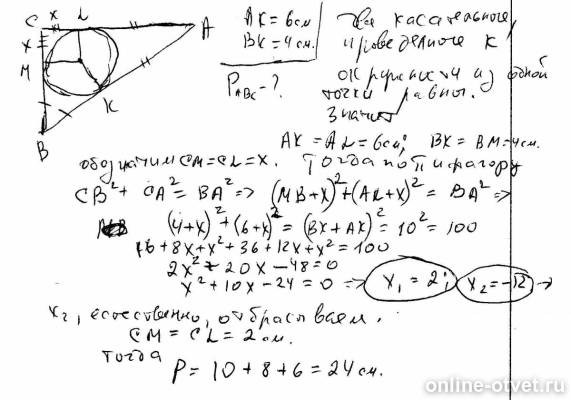 C x L A
x
M
K
B
AK = 6см
BK = 4см.
P_ABC - ?
Две касательные,
проведённые к
окружности из одной
точки равны.
Значит
AK = AL = 6см; BK = BM = 4см.
обозначим CM = CL = x. Тогда по Пифагору
CB² + CA² = BA² => (MB+x)² + (AL+x)² = BA² =>
(4+x)² + (6+x)² = (BK+AK)² = 10² = 100
16 + 8x + x² + 36 + 12x + x² = 100
2x² + 20x - 48 = 0
x² + 10x - 24 = 0 => x₁ = 2; x₂ = -12 →
x₂, естественно, отбрасываем.
CM = CL = 2 см.
тогда
P = 10 + 8 + 6 = 24 см.
online-otvet.ru